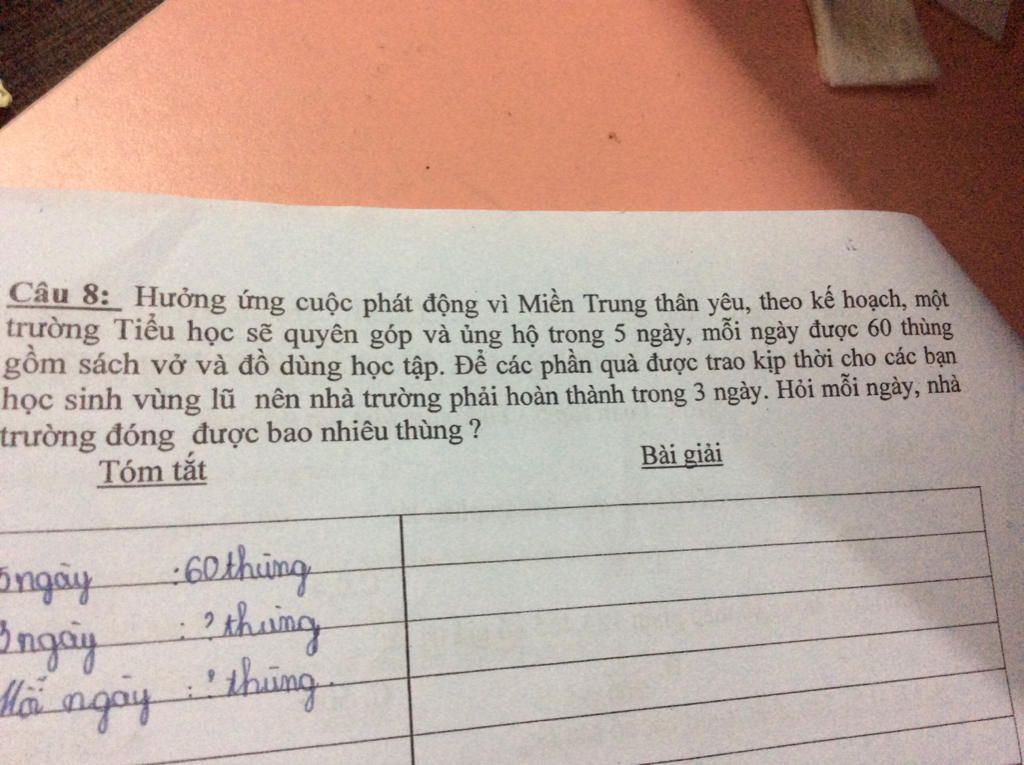 Câu 8: Hưởng ứng cuộc phát động vì Miền Trung thân yêu, theo kế hoạch, một
trường Tiểu học sẽ quyên góp và ủng hộ trong 5 ngày, mỗi ngày được 60 thùng
gồm sách vở và đồ dùng học tập. Để các phần quà được trao kịp thời cho các bạn
học sinh vùng lũ nên nhà trường phải hoàn thành trong 3 ngày. Hỏi mỗi ngày, nhà
trường đóng được bao nhiêu thùng ?
Tóm tắt
Bài giải
5 ngày : 60 thùng
3 ngày : ? thùng
Mỗi ngày : ? thùng.